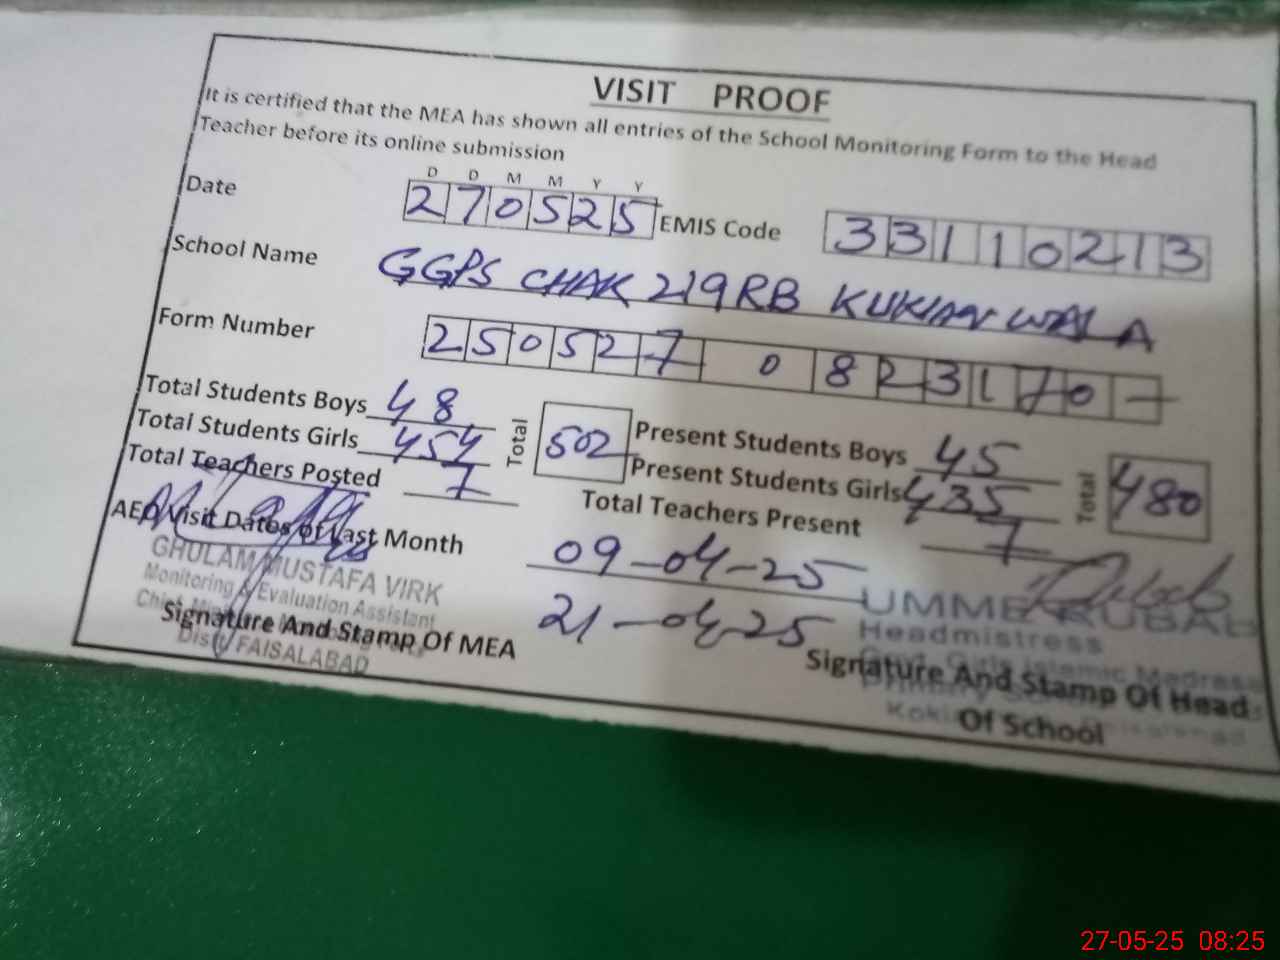 VISIT PROOF
It is certified that the MEA has shown all entries of the School Monitoring Form to the Head
Teacher before its online submission
D D M M Y Y
Date 270525 EMIS Code 33110213
School Name GGPS CHAK 219RB KUKIANWALA
Form Number 250527 0 823170 -
Total Students Boys 48 Present Students Boys 45
Total Students Girls 454 Total 502 Present Students Girls 435 Total 480
Total Teachers Posted 7 Total Teachers Present 7
AEO Visit Dates of Last Month 09-04-25
21-04-25
GHULAM MUSTAFA VIRK
Monitoring & Evaluation Assistant
Distt FAISALABAD
Signature And Stamp Of MEA
UMME RUBAB
Headmistress
Govt. Girls Islamic Madrasa
Signature And Stamp Of Head
Of School
27-05-25 08:25